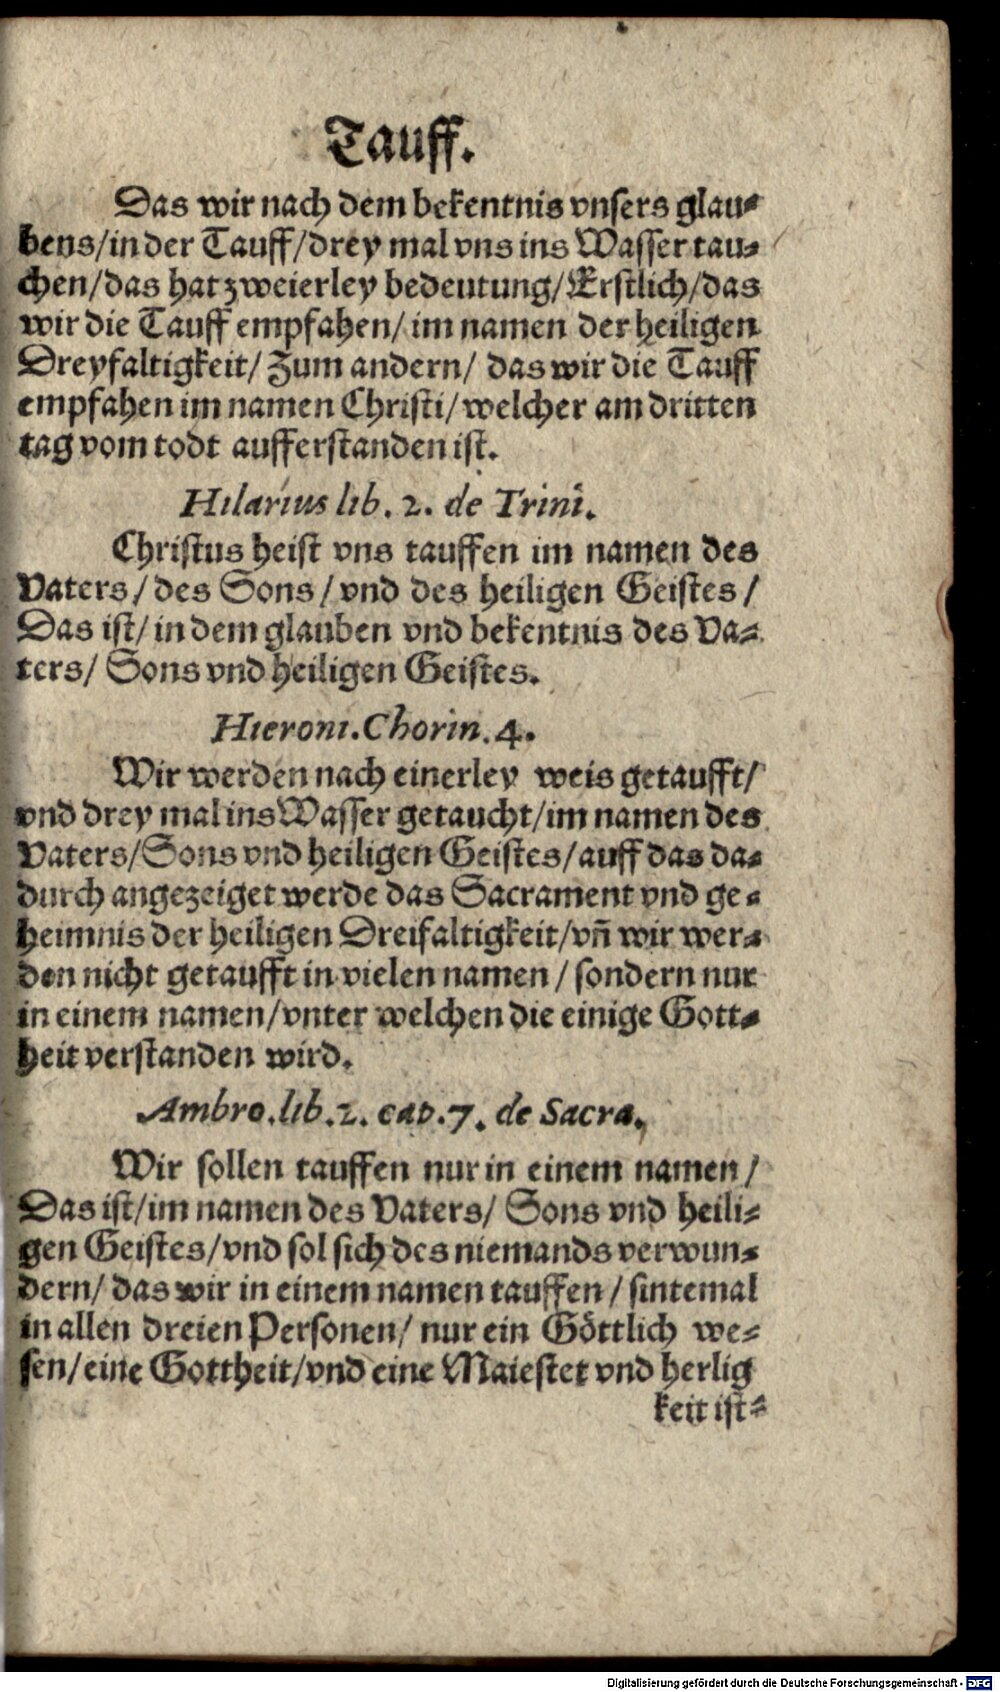 Tauff.
Das wir nach dem bekentnis vnsers glau⸗
bens/in der Tauff/drey mal vns ins Wasser tau⸗
chen/das hat zweierley bedeutung/Erstlich/das
wir die Tauff empfahen/im namen der heiligen
Dreyfaltigkeit/Zum andern/ das wir die Tauff
empfahen im namen Christi/welcher am dritten
tag vom todt aufferstanden ist.
Hilarius lib. 2. de Trini.
Christus heist vns tauffen im namen des
Vaters/des Sons/vnd des heiligen Geistes/
Das ist/in dem glauben vnd bekentnis des Va⸗
ters/ Sons vnd heiligen Geistes.
Hieroni. Chorin. 4.
Wir werden nach einerley weis getaufft/
vnd drey mal ins Wasser getaucht/im namen des
Vaters/Sons vnd heiligen Geistes/auff das da⸗
durch angezeiget werde das Sacrament vnd ge⸗
heimnis der heiligen Dreifaltigkeit/vñ wir wer⸗
den nicht getaufft in vielen namen/sondern nur
in einem namen/vnter welchen die einige Gott⸗
heit verstanden wird.
Ambro. lib. 2. cap. 7. de Sacra.
Wir sollen tauffen nur in einem namen/
Das ist/im namen des Vaters/ Sons vnd heili⸗
gen Geistes/vnd sol sich des niemands verwun⸗
dern/ das wir in einem namen tauffen/sintemal
in allen dreien Personen/ nur ein Göttlich we⸗
sen/eine Gottheit/vnd eine Maiestet vnd herlig
keit ist⸗
Digitalisierung gefördert durch die Deutsche Forschungsgemeinschaft - DFG